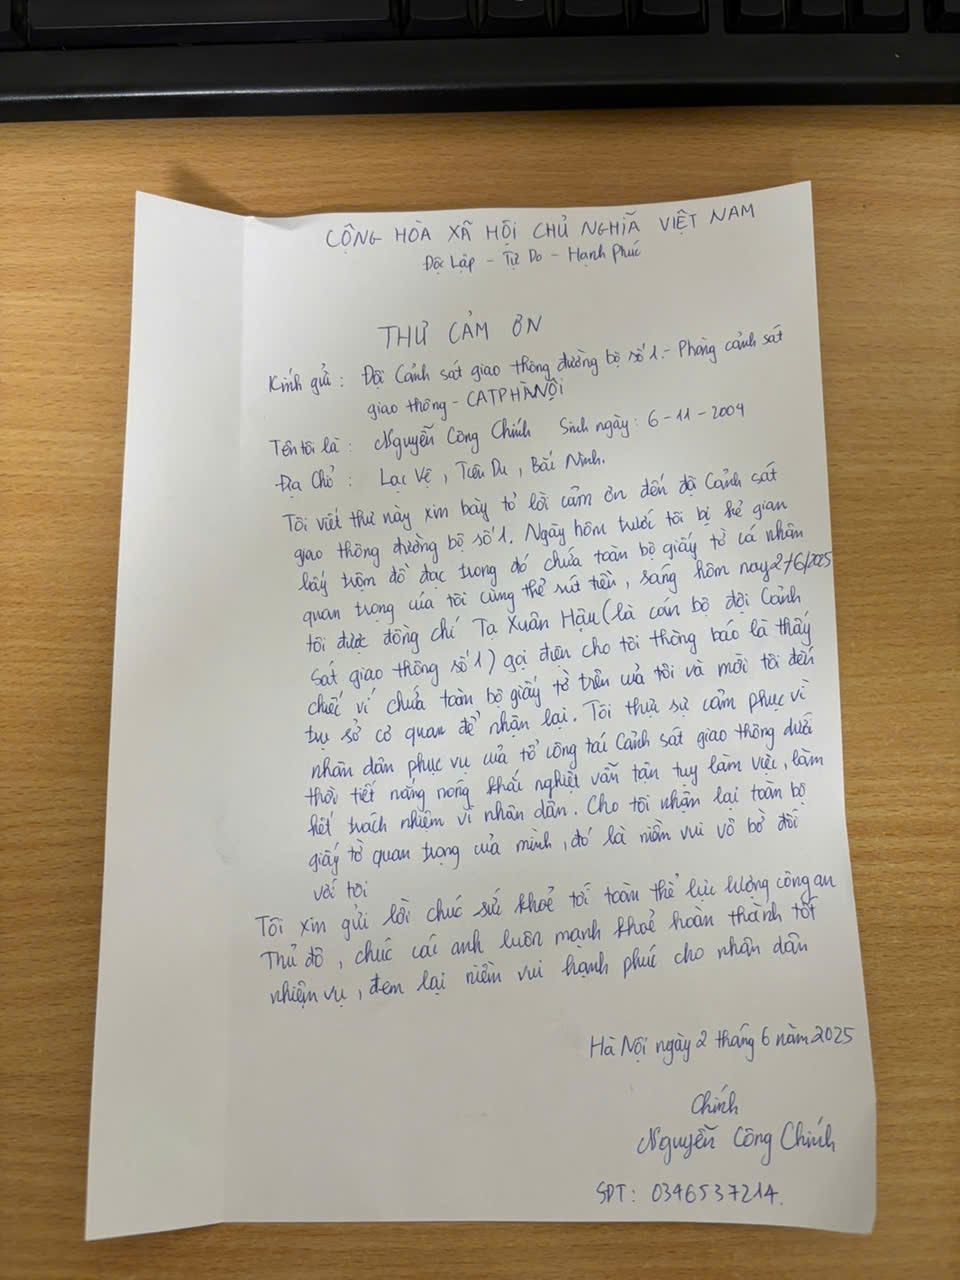 CỘNG HÒA XÃ HỘI CHỦ NGHĨA VIỆT NAM
Độc Lập - Tự Do - Hạnh Phúc
THƯ CẢM ƠN
Kính gửi : Đội Cảnh sát giao thông đường bộ số 1 - Phòng cảnh sát
giao thông - CATPHÀNỘI
Tên tôi là : Nguyễn Công Chính Sinh ngày : 6-11-2004
Địa Chỉ : Lạc Vệ, Tiên Du, Bắc Ninh.
Tôi viết thư này xin bày tỏ lời cảm ơn đến đội Cảnh sát
giao thông đường bộ số 1. Ngày hôm trước tôi bị kẻ gian
lấy trộm đồ đạc trong đó chứa toàn bộ giấy tờ cá nhân
quan trọng của tôi cùng thẻ rút tiền, sáng hôm nay 2/6/2025
tôi được đồng chí Tạ Xuân Hậu (là cán bộ đội Cảnh
sát giao thông số 1) gọi điện cho tôi thông báo là thấy
chiếc ví chứa toàn bộ giấy tờ trên của tôi và mời tôi đến
trụ sở cơ quan để nhận lại. Tôi thực sự cảm phục vì
nhân dân phục vụ của tổ công tác Cảnh sát giao thông dưới
thời tiết nắng nóng khắc nghiệt vẫn tận tụy làm việc, làm
hết trách nhiệm vì nhân dân. Cho tôi nhận lại toàn bộ
giấy tờ quan trọng của mình, đó là niềm vui vô bờ đối
với tôi
Tôi xin gửi lời chúc sức khoẻ tới toàn thể lực lượng công an
Thủ đô, chúc các anh luôn mạnh khoẻ hoàn thành tốt
nhiệm vụ, đem lại niềm vui hạnh phúc cho nhân dân
Hà Nội ngày 2 tháng 6 năm 2025
Chính
Nguyễn Công Chính
SĐT : 0346537214.